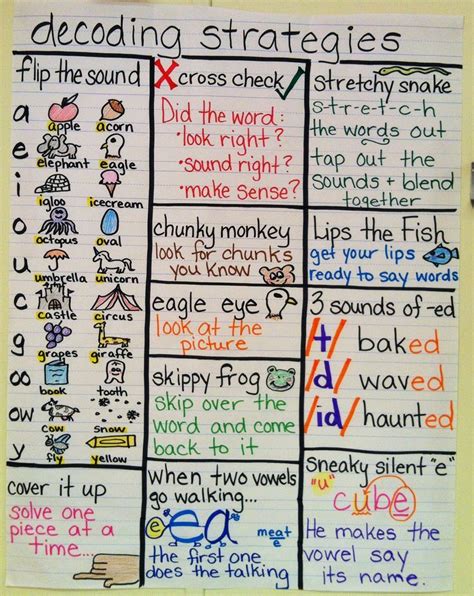 decoding strategies
flip the sound
a
apple
acorn
e
elephant
eagle
i
igloo
icecream
o
octopus
oval
u
umbrella
unicorn
c
castle
circus
g
grapes
giraffe
oo
book
tooth
ow
cow
snow
y
fly
yellow
cover it up
solve one
piece at a
time...
X cross check ✓
Did the word:
• look right?
• sound right?
• make sense?
chunky monkey
look for chunks
you know
eagle eye
look at the
picture
skippy frog
skip over the
word and come
back to it
when two vowels
go walking...
"e"
ea
meat
e
the first one
does the talking
stretchy snake
s-t-r-e-t-c-h
the words out
tap out the
sounds + blend
together
Lips the Fish
get your lips
ready to say words
3 sounds of -ed
/t/ baked
/d/ waved
/id/ haunted
Sneaky silent "e"
"u"
cube
He makes the
vowel say
its name.